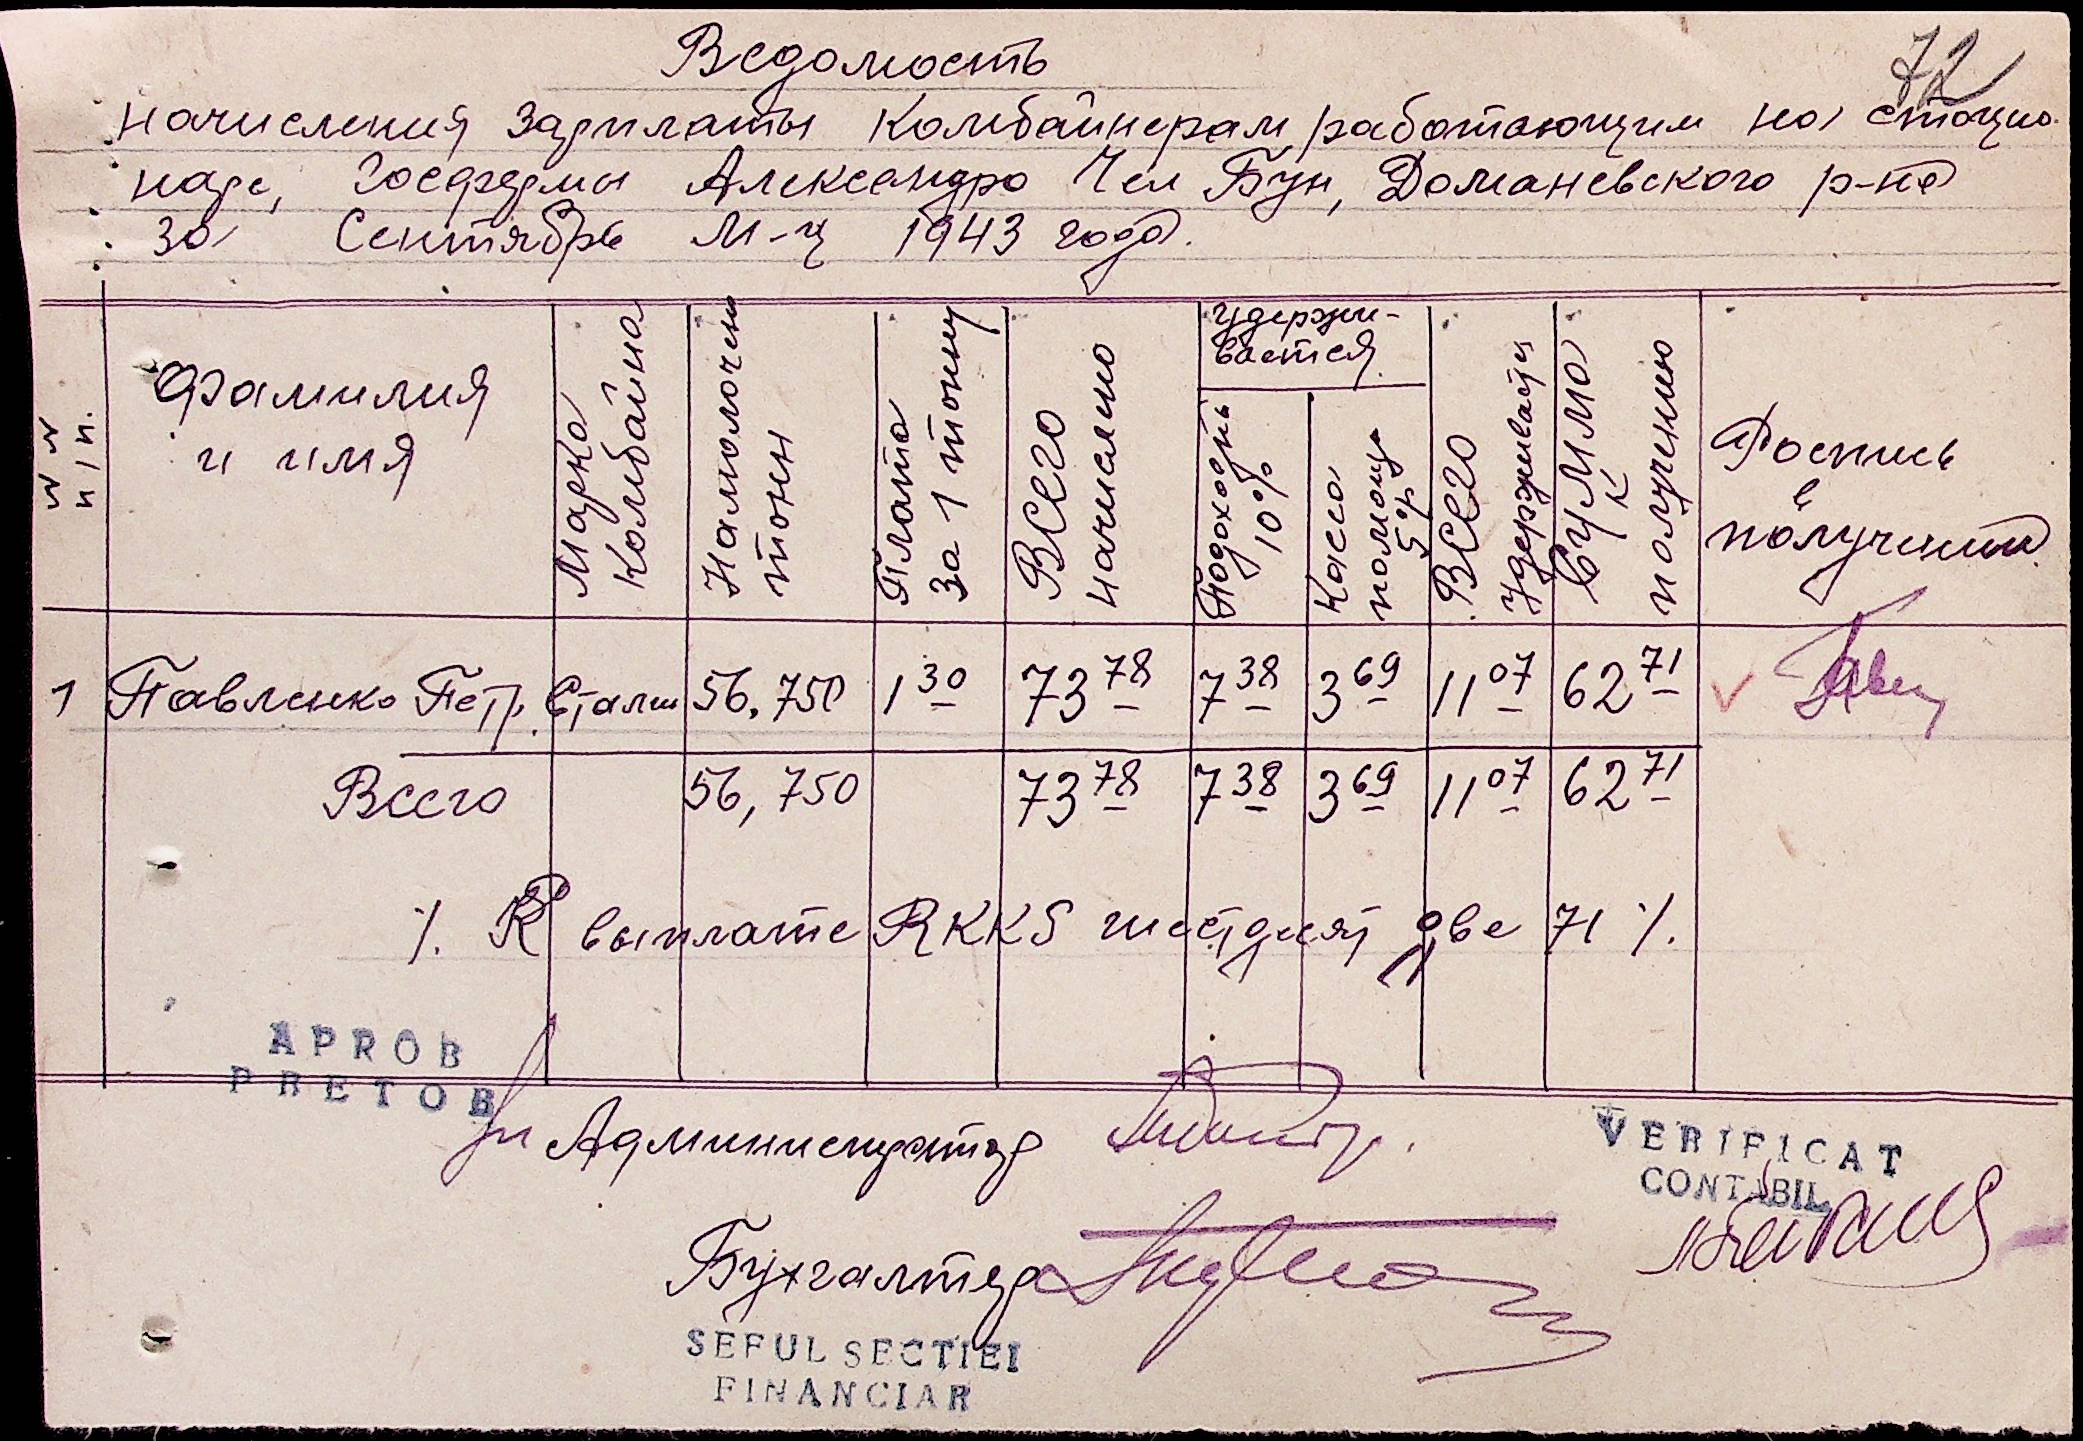 72
Ведомость
начисления зарплаты комбайнерам работающим на стацио
наре, Госфермы Александро Чел Бун, Доманевского р-на
за Сентябрь м-ц 1943 года.
№№ п/п.
Фамилия и имя
Марка Комбайна
Намолочено тонн
Плата за 1 тонну
Всего начислено
Удержи-
вается
Подоходн 10%
Касса помощи 5%
Всего удержывается
Сумма к получению
Роспись в получении.
1 Павленко Петр. Сталин 56,750 1 30 73 78 7 38 3 69 11 07 62 71
Всего 56,750 73 78 7 38 3 69 11 07 62 71
К выплате RKKS шестдесят две 71
APROB
PRETOR
Администратор
VERIFICAT
CONTABIL
Бухгалтер
SEFUL SECTIEI
FINANCIAR